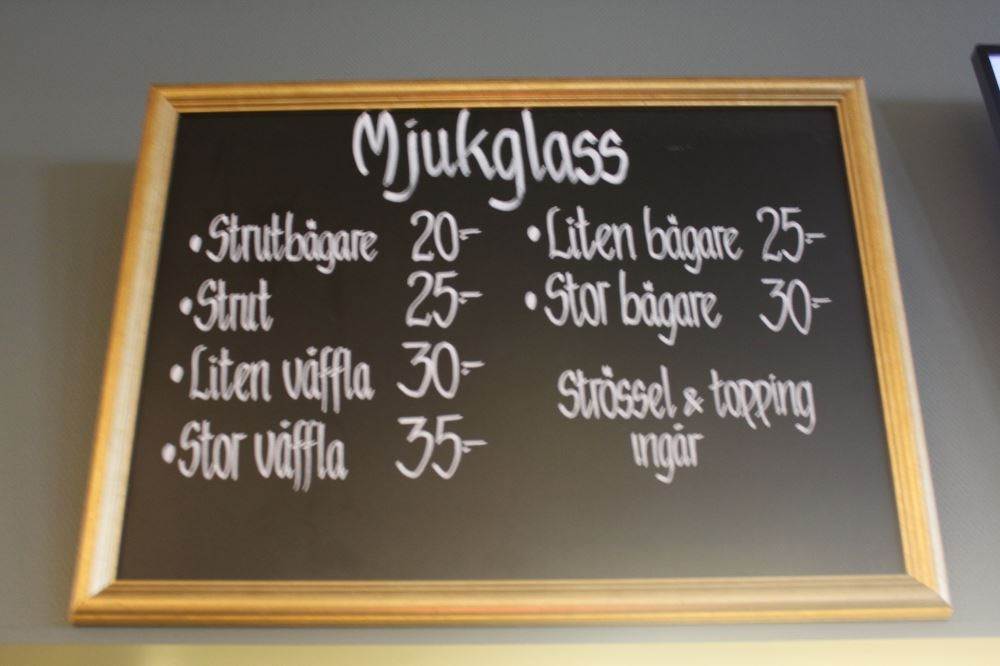 Mjukglass
• Strutbägare 20:-
• Strut 25:-
• Liten våffla 30:-
• Stor våffla 35:-
• Liten bägare 25:-
• Stor bägare 30:-
Strössel & topping
ingår